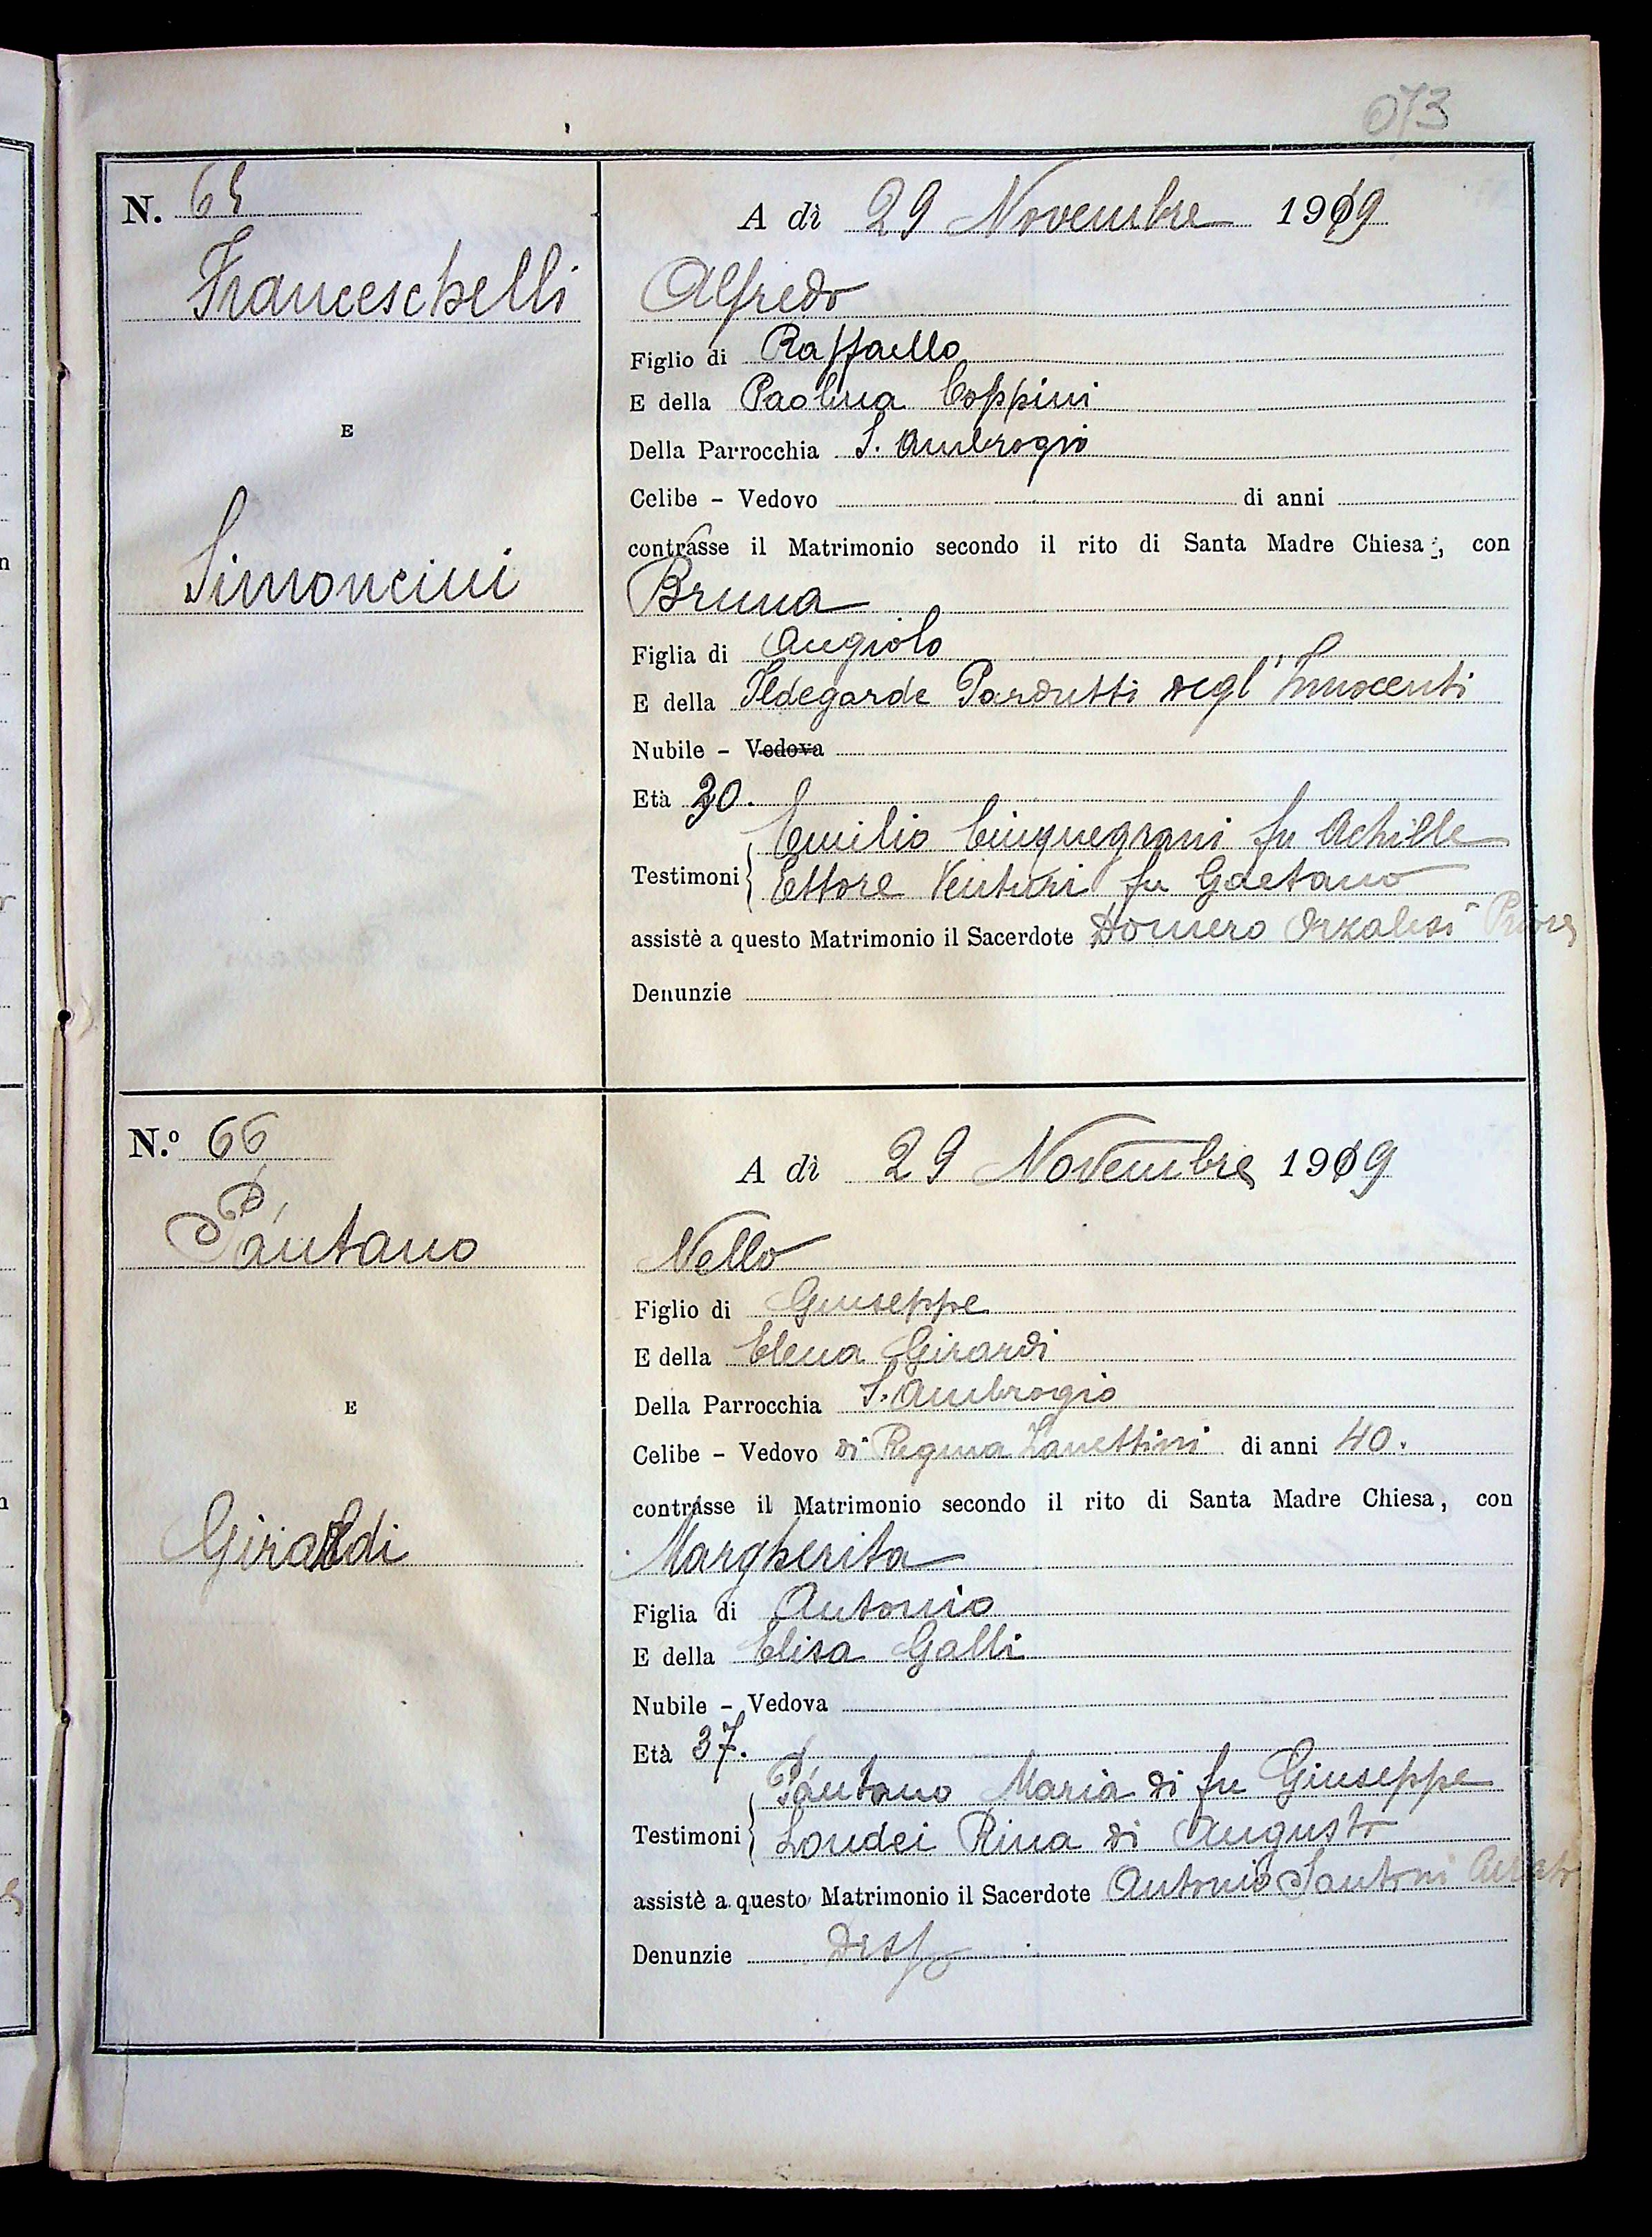 073
N. 65
A dì 29 Novembre 1919
Franceschelli
Alfredo
Figlio di Raffaello
E della Paolina Coppini
E
Della Parrocchia S. Ambrogio
Celibe - Vedovo di anni
contrasse il Matrimonio secondo il rito di Santa Madre Chiesa, con
Simoncini
Bruna
Figlia di Angiolo
E della Ildegarde Pardutti degl'Innocenti
Nubile - Vedova
Età 20.
Emilio Cinquegrani fu Achille
Testimoni
Ettore Venturi fu Gaetano
assistè a questo Matrimonio il Sacerdote Domero Orzalesi Priore
Denunzie
N.º 66
A dì 29 Novembre 1919
Pantano
Nello
Figlio di Giuseppe
E della Elena Girardi
Della Parrocchia S. Ambrogio
E
Celibe - Vedovo di Regina Zanettini di anni 40.
contrasse il Matrimonio secondo il rito di Santa Madre Chiesa, con
Giraldi
Margherita
Figlia di Antonio
E della Elisa Galli
Nubile - Vedova
Età 37.
Pantano Maria di fu Giuseppe
Testimoni
Londei Rina di Augusto
assistè a questo Matrimonio il Sacerdote Antonio Santoni Curato
Denunzie